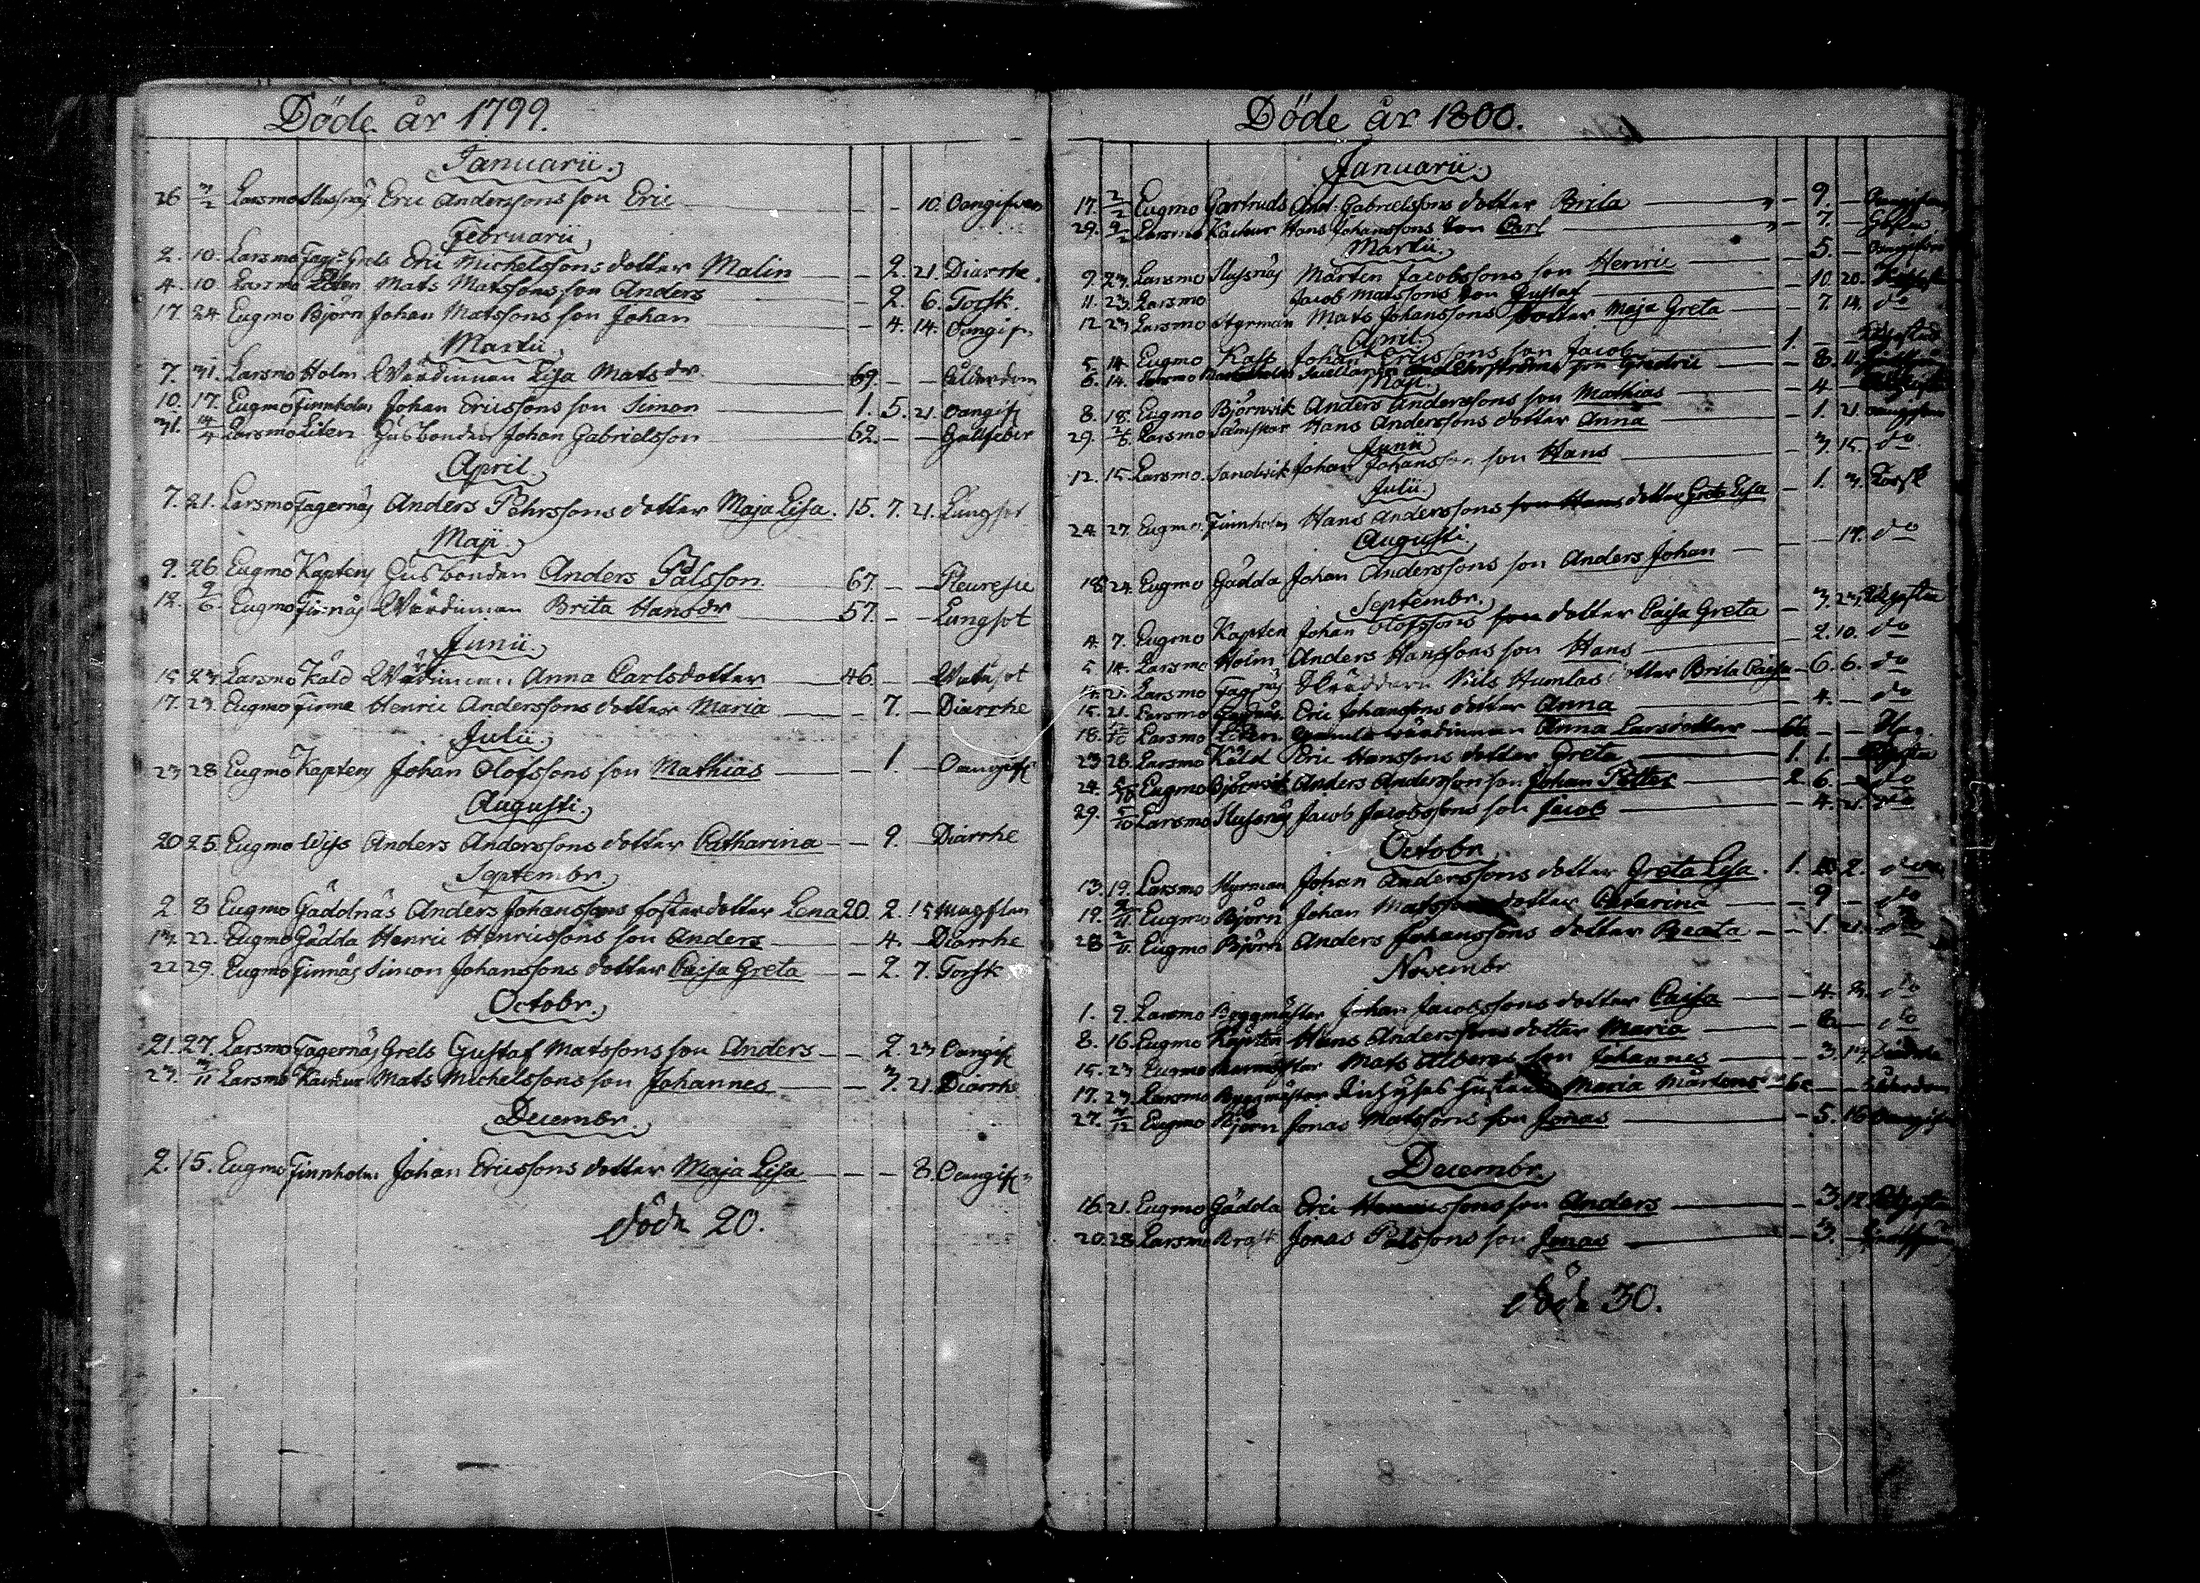 Döde år 1799.
Januarii.
26 3/2 Larsmo Slussnäs Eric Anderssons son Eric — — 10. Oangifven
Februarii
2. 10. Larsmo Fag: Grels Eric Michelssons dotter Malin — 2. 21. Diarrhe.
4. 10 Larsmo Liten Mats Matssons son Anders — 2. 6. Torsk
17. 24. Eugmo Björn Johan Matssons son Johan — 4. 14. Oangif.
Martii
7. 31. Larsmo Holm Wärdinnan Lisa Matsdr 69. — — Ålderdom
10. 17. Eugmo Finnholm Johan Ericssons son Simon 1. 5. 21. Oangif
31. 14/4 Larsmo Liten Husbonden Johan Gabrielsson 62. — — Gallfeber
April.
7. 21. Larsmo Fagernäs Anders Pehrssons dotter Maja Lisa. 15. 7. 21. Lungsot
Maji.
9. 26. Eugmo Kaptens Husbonden Anders Pålsson 67. — — Pleuresie
12. 2/6. Eugmo Finnäs Wärdinnan Brita Hansdr 57. — — Lungsot
Junii.
15 23 Larsmo Kåld Wärdinnan Anna Carlsdotter 46. — — Watusot
17. 23. Eugmo Finne Henric Anderssons dotter Maria — 7. — Diarrhe
Julii.
23 28 Eugmo Kaptens Johan Olofssons son Mathias — 1. — Oangif
Augusti.
20 25. Eugmo Wiss Anders Anderssons dotter Catharina — 9. — Diarrhe
Septembr.
2. 8 Eugmo Gäddnäs Anders Johanssons fosterdotter Lena 20. 2. 15 Magplan
13. 22. Eugmo Gädda Henric Henricssons son Anders — 4. — Diarrhe
22 29. Eugmo Finnäs Simon Johanssons dotter Caisa Greta — 2. 7. Torsk
Octobr.
21. 27. Larsmo Fagernäs Grels Gustaf Matssons son Anders — 2. 23 Oangif
23. 3/11 Larsmo Kackur Mats Michelssons son Johannes — 3. 21. Diarrhe
Decembr.
2. 15. Eugmo Finnholm Johan Ericssons dotter Maja Lisa — — 8. Oangif
döde 20.
Döde år 1800.
Januarii.
17. 2/2 Eugmo Gertruds And: Gabrielssons dotter Brita — 9. — Oangifven
29. 9/2 Larsmo Kackur Hans Johanssons son Carl — 7. —
Martii.
9. 23. Larsmo Slussnäs Mårten Jacobssons son Henric — 5. — Oangifven
11. 23. Larsmo Jacob Matssons son Gustaf — 10. 20.
12 23 Larsmo Styrman Mats Johanssons dotter Maja Greta — 7. 14. do
April.
5. 14. Eugmo Kass Johan Ericssons son Jacob 1. — —
6. 14. Larsmo son Gredric — 8. 11.
Maji.
8. 18. Eugmo Björnvik Anders Anderssons son Mathias — 4. —
29. Larsmo Sämskar Hans Anderssons dotter Anna — 1. 21. oangifven
Junii
12. 15. Larsmo. Sandvik Johan Johansson son Hans — 3. 15. do
Julii.
24. 27. Eugmo. Finnholm Hans Anderssons son Hans dotter Greta Lisa — 1. 3. Torsk
Augusti.
18. 24. Eugmo Gädda Johan Anderssons son Anders Johan — — 14. do
Septembr.
4. 7. Eugmo Kapten Johan Olofssons son dotter Caisa Greta — 3. 23.
5 14. Larsmo Holm Anders Hanssons son Hans — 2. 10. do
14. 21. Larsmo Fagnäs Skräddarn Nils Humlas dotter Brita Caisa — 6. 6. do
15. 21. Larsmo Eric Johanssons dotter Anna — 4. — do
18. Larsmo Liten gamla wärdinnan Anna Larsdotter 66. — —
23 28. Larsmo Kåld Eric Hanssons dotter Greta 1. 1. —
24. 5/10 Eugmo Björnvik Anders Andersson son Johan Petter 2. 6. — do
29. 5/10 Larsmo Slussnäs Jacob Jacobssons son Jacob — 4. 21. do
Octobr.
13. 19. Larsmo Styrman Johan Anderssons dotter Greta Lisa. 1. 2.
19. 2/11 Eugmo Björn Johan Matssons dotter Catarina — 9 — do
28 2/11. Eugmo Björn Anders Johanssons dotter Beata — 1. 21. do
Novembr
1. 9. Larsmo Byggmäster Johan Jacobssons dotter Caisa — 4. 8. do
8. 16. Eugmo Kapten Hans Anderssons dotter Maria — 8. — do
15. 23 Eugmo Mats son Johannes — 3. 13.
17. 23. Larsmo Byggmäster Maria Mårtens — — Ålderdom
27. 7/12 Eugmo Björn Jonas Matssons son Jonas — 5. 16 Oangifven
Decembr.
16. 21. Eugmo Gädda Eric Henricssons son Anders — 3. 12.
20. 28. Larsmo Kraft Jonas Pålssons son Jonas — 3. —
döde 30.